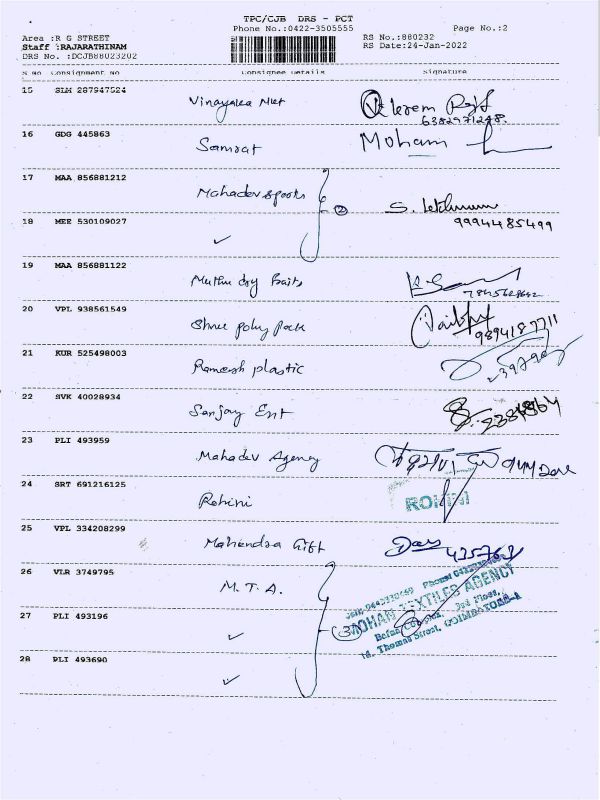 TPC/CJB DRS - PCT
Phone No.:0422-3505555 Page No.:2
Area :R G STREET RS No.:880232
Staff :RAJARATHINAM RS Date:24-Jan-2022
DRS No. :DCJB88023202
S No Consignment No Consignee Details Signature
15 SLM 287947524 Vinayaka Mkt
6382971248.
16 GDG 445863 Samrat Moham
17 MAA 856881212 Mahadev spoots
② S. 
9994485499
18 MEE 530109027 ✓
19 MAA 856881122 Muthu dry fruits
7845628642
20 VPL 938561549 Shree poly pack
9894187711
21 KUR 525498003 Ramesh plastic
22 SVK 40028934 Sanjay Ent
23 PLI 493959 Mahadev Agency
24 SRT 691216125 Rohini ROHINI
25 VPL 334208299 Mahendra Gift
26 VLR 3749795 M.T.A.
MOHAN TEXTILES AGENCY
27 PLI 493196 ✓ ③
3rd Floor,
Thomas Street, COIMBATORE-1
28 PLI 493690 ✓